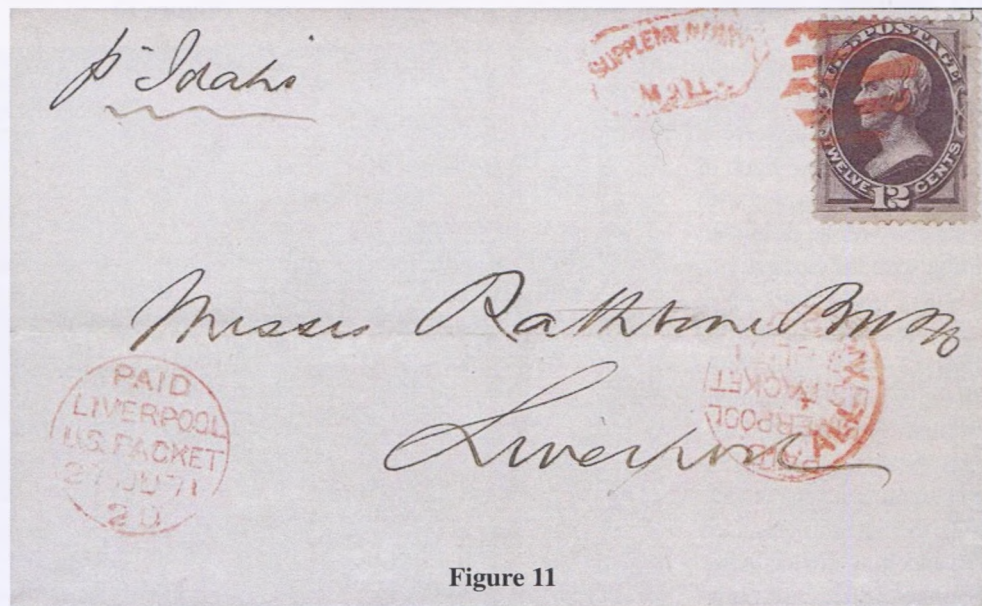 p Idaho
SUPPLEMENTARY
MAIL
U.S. POSTAGE
TWELVE 12 CENTS
Messrs Rathbone Bros
Liverpool
PAID
LIVERPOOL
U.S. PACKET
27 JU 71
2D
PACKET
Figure 11